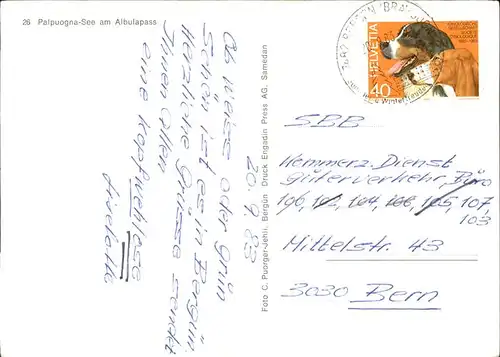 26 Palpuogna-See am Albulapass
20. 9. 83
Ob weiss oder grün
schön ist es in Bergün
Herzliche Grüsse sendet
Ihnen allen
eine Kopfwehlose
Liselotte
Foto C. Puorger-Jehli, Bergün Druck Engadin Press AG, Samedan
HELVETIA
40
SBB
Kommerz. Dienst
Güterverkehr, Büro
106, 102, 104, 105, 107,
103
Mittelstr. 43
3030 Bern